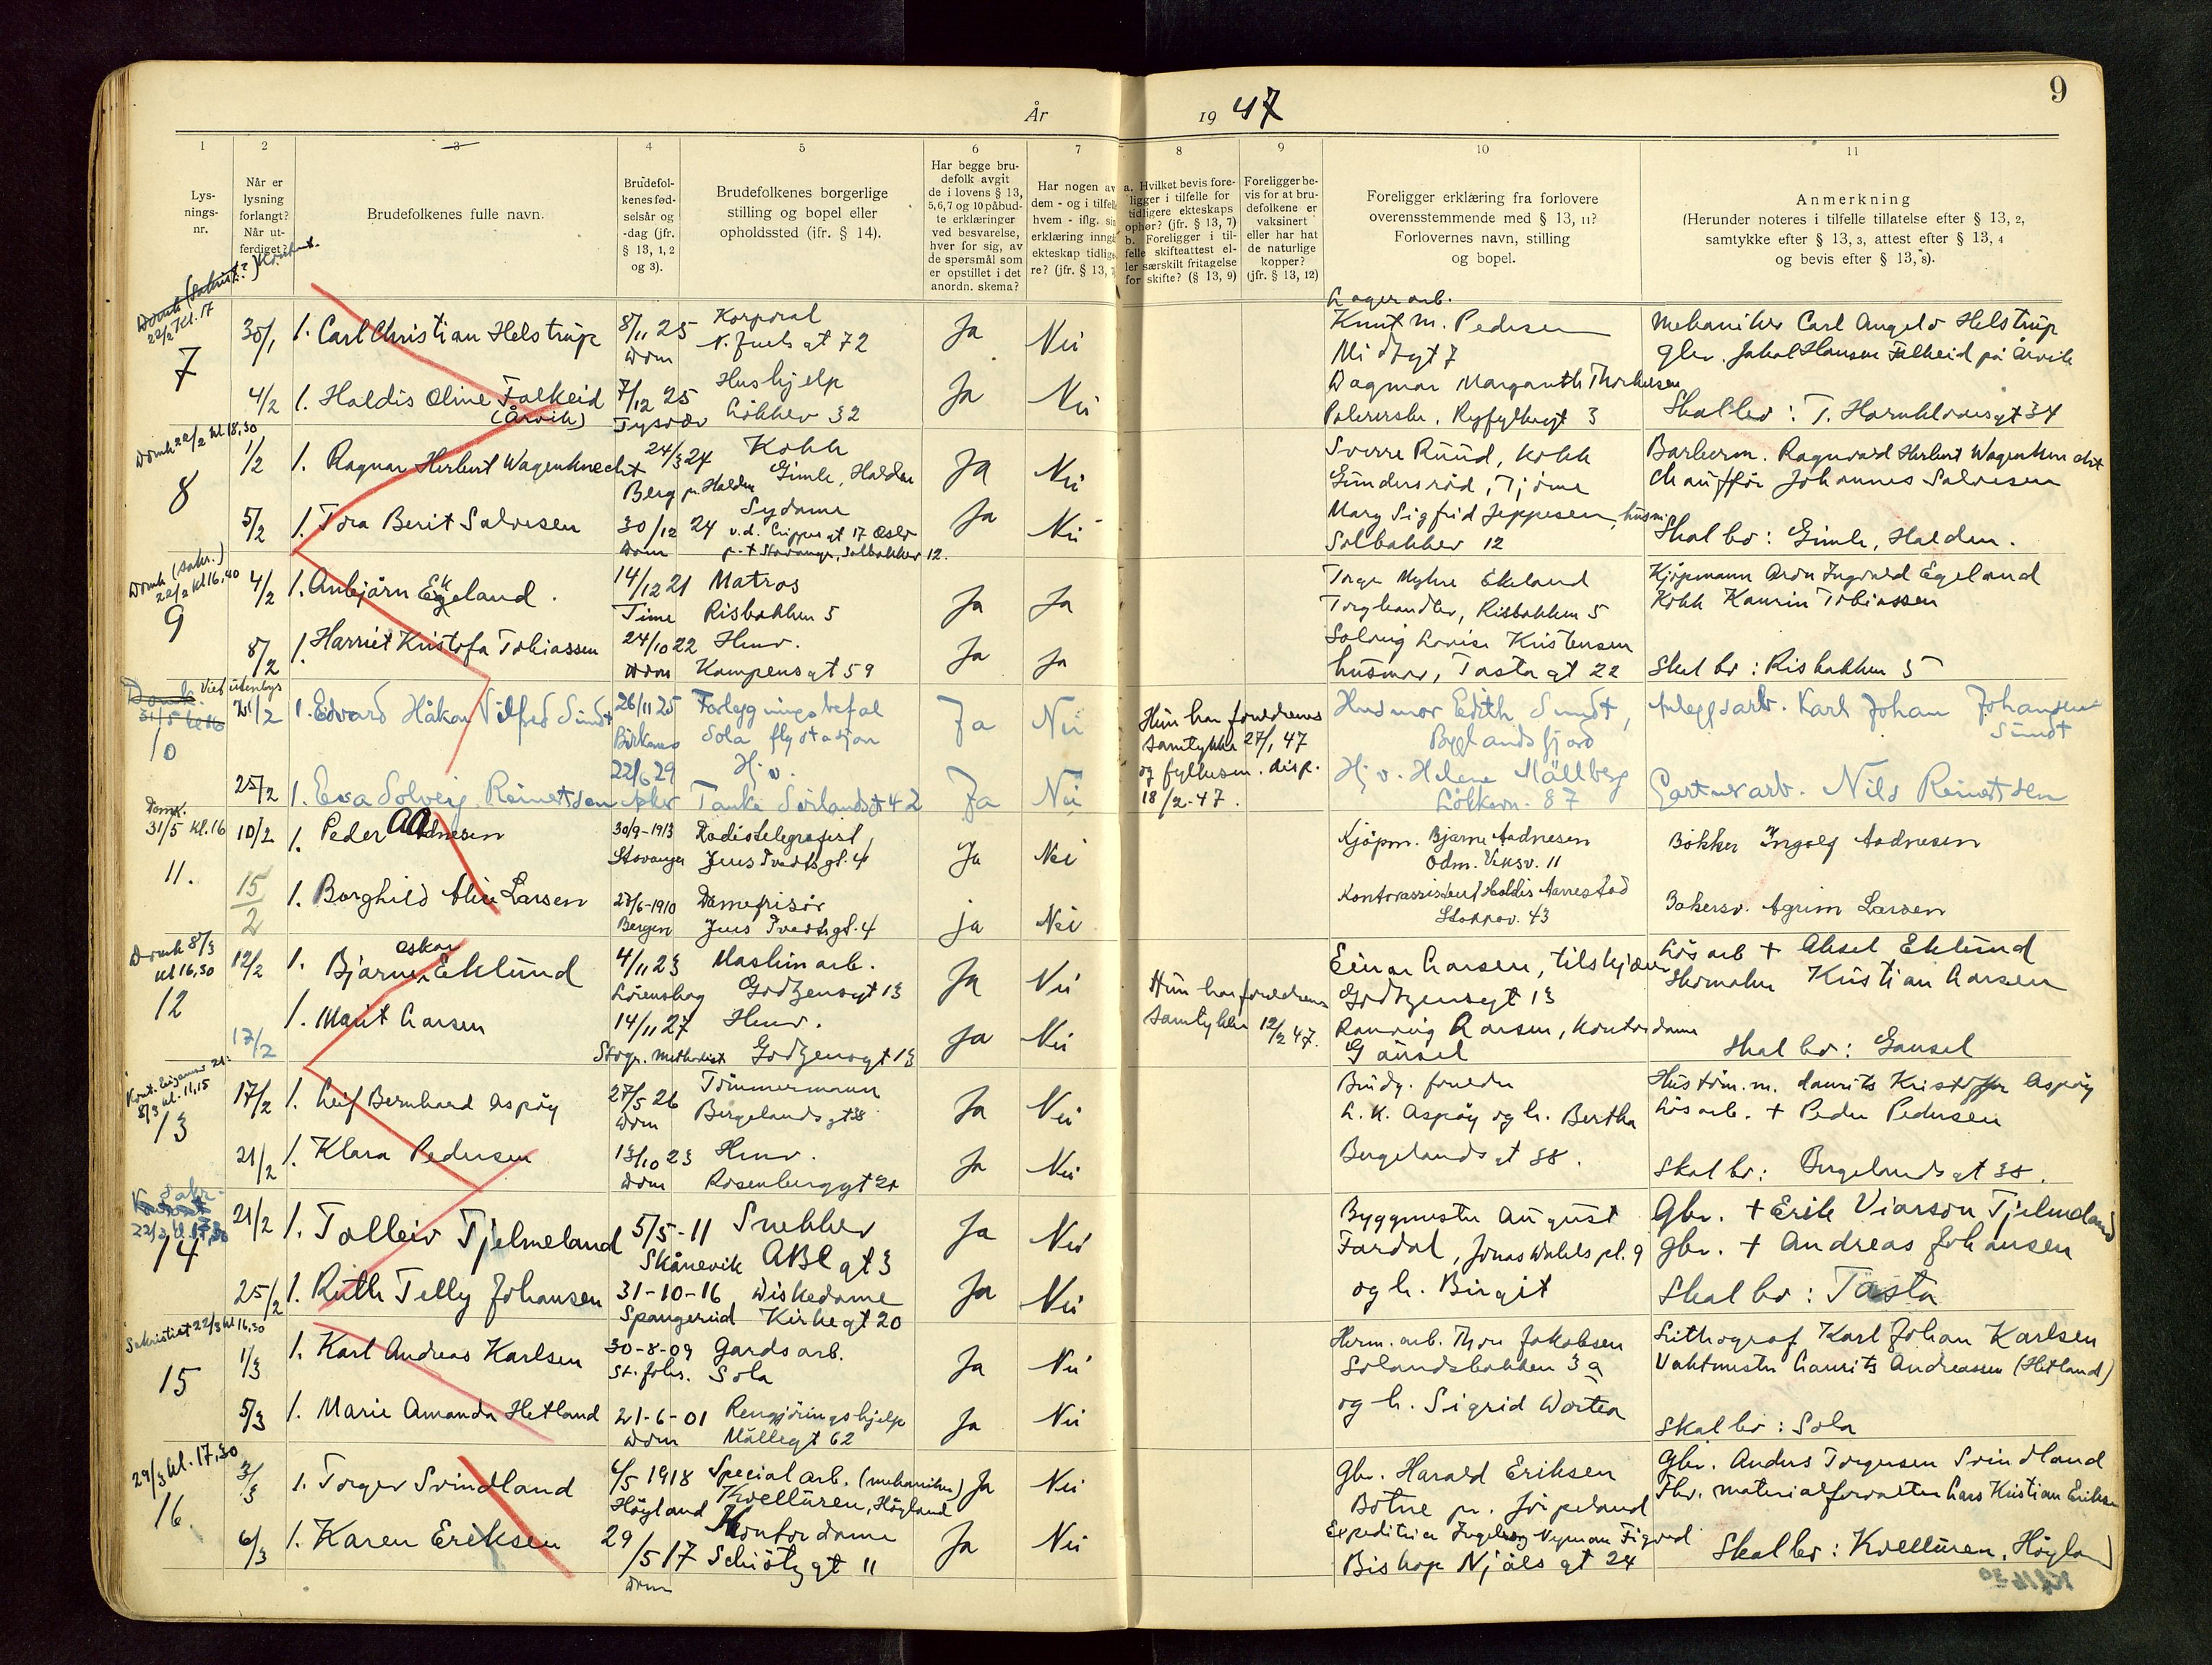 År
19 47
9
1
2
3
4
5
6
7
8
9
10
11
Lys-
nings-
nr.
Når er
lysning
forlangt?
Når ut-
ferdiget?
Brudefolkenes fulle navn.
Brudefol-
kenes fød-
selsår og
-dag (jfr.
§ 13, 1, 2
og 3).
Brudefolkenes borgerlige
stilling og bopel eller
opholdssted (jfr. § 14).
Har begge bru-
defolk avgit
de i lovens § 13,
5,6,7 og 10 påbud-
te erklæringer
ved besvarelse,
hver for sig, av
de spørsmål som
er opstillet i det
anordn. skema?
Har nogen av
dem - og i tilfelle
hvem - iflg. sin
erklæring inngå
ekteskap tidlige
re? (jfr. § 13, 7
a. Hvilket bevis fore-
ligger i tilfelle for
tidligere ekteskaps
ophør? (jfr. § 13, 7)
b. Foreligger i til-
felle skifteattest el-
ler særskilt fritagelse
for skifte? (§ 13, 9)
Foreligger be-
vis for at bru-
defolkene er
vaksinert
eller har hat
de naturlige
kopper?
(jfr. § 13, 12)
Foreligger erklæring fra forlovere
overensstemmende med § 13, 11?
Forlovernes navn, stilling
og bopel.
Anmerkning
(Herunder noteres i tilfelle tillatelse efter § 13, 2,
samtykke efter § 13, 3, attest efter § 13, 4
og bevis efter § 13, 8).
22/2 kl. 17
7
30/1 1. Carl Christian Helstrup 8/11 25 Korporal Ja Nei
Dom gt 72
Lagerarb.
Knut M. Pedersen
Nidtgt 7
Mekaniker Carl Angelo Helstrup
gbr. Jakob Hansen Falkeid på Årvik
4/2 1. Haldis Oline Falkeid 7/12 25 Hushjelp Ja Nei
(Årvik) Tysvær Løkkev 32
Dagmar Margareth Thorkilsen
Ryfylkegt 3
Skal bo: T. Hornklovesgt 34
Domk 22/2 kl 18,30
8
1/2 1. Ragnar Herbert Wagenknecht 24/3 24 Kokk Ja Nei
Berg pr. Halden Gimle, Halden
Sverre Ruud, kokk
Gundersrød, Tjøme
Barberm. Ragnvald Herbert Wagenknecht
Chauffør Johannes Salvesen
5/2 1. Tora Berit Salvesen 30/12 24 Sydame Ja Nei
Dom v.d. Lippes gt 17 Oslo
p.t Stavanger, Solbakkev 12.
Mary Sigfrid Jeppesen, husm.
Solbakkev 12
Skal bo: Gimle, Halden.
Domk (sakr.)
22/2 kl 16,40
9
4/2 1. Anbjørn Egeland. 14/12 21 Matros Ja Ja
Time Risbakken 5
Torger Myhre Ekeland
Torghandler, Risbakken 5
Kjøpmann Aron Ingvald Egeland
Kokk Kaurin Tobiassen
8/2 1. Harriet Kristofa Tobiassen 24/10 22 Hmv. Ja Ja
Dom Kampensgt 59
Solveig Lovise Kristensen
husmor, Tastagt 22
Skal bo: Risbakken 5
Domk. Viet utenbys
31/5
10
1/2 1. Edvard Håkon Vilfred Sundt 26/11 25 Forlegningsbefal Ja Nei
Birkenes Sola flystasjon
Hun har foreldrenes
samtykke 27/1 47
og fylkesm. disp.
18/2-47.
Husmor Edith Sundt,
Byglandsfjord
Anleggsarb. Karl Johan Johansen
Sundt
25/2 1. Eva Solveig Reinertsen 22/6 29 Hj.v. Ja Nei
Aker Tanke Svilandsgt 42
Hj.v. Helene Mällberg
Løkkevn. 87
Gartnerarb. Nils Reinertsen
Domk.
31/5 kl.16
11.
10/2 1. Peder Aadnesen 30/9-1913 Radiotelegrafist Ja Nei
Stavanger Jens Tvedtsgt. 4
Kjöpm. Bjarne Aadnesen
Odm. Viksv. 11
Bøkker Ingolf Aadnesen
15/2 1. Borghild Alice Larsen 23/6-1910 Damefrisör ja Nei
Bergen Jens Tvedtsgt. 4
Kontorassistent Haldis Aarrestad
Stokkav. 43
Bakersv. Agrim Larsen
Domk 8/3
kl 16,30
12
12/2 1. Bjarne Oskar Eklund 4/11 23 Maskinarb. Ja Nei
Lörenskog Godtzensgt 13
Hun har foreldrenes
samtykke 12/2 47.
Einar Larsen, tilskjærer
Godtzensgt 13
Løsarb + Aksel Eklund
Skomaker Kristian Larsen
17/2 1. Marit Larsen 14/11 27 Hmv. Ja Nei
Stvgr. Methodist Godtzensgt 13
Rannveig Larsen, kontordame
Gausel
Skal bo: Gausel
8/3 kl. 11,15
13
17/2 1. Leif Bernhard Aspöy 27/5 26 Tömmermann Ja Nei
Dom Bergelandsgt 38
Brudg. foreldre
L. K. Aspöy og h. Bertha
Bergelandsgt 38.
Hustöm.m. Laurits Kristoffer Aspöy
Løsarb. + Peder Pedersen
21/2 1. Klara Pedersen 13/10 23 Hmv. Ja Nei
Dom Rosenberggt 21
Skal bo: Bergelandsgt 38.
Sakr.
22/3 kl 17,30
14
21/2 1. Tolleiv Tjelmeland 5/5-11 Snekker Ja Nei
Skånevik ABCgt 3
Byggmester August
Fardal, Jonas Dahls pl. 9
og h. Birgit
Gbr. + Erik Viarson Tjelmeland
gbr. + Andreas Johansen
25/2 1. Ruth Telly Johansen 31-10-16 Diskedame Ja Nei
Spangereid Kirkegt 20
Skal bo: Tasta
Sakristiet 22/3 kl 16,30
15
1/3 1. Karl Andreas Karlsen 30-8-09 Gardsarb. Ja Nei
St. Johs. Sola
Herm.arb. Thor Jakobsen
Solandsbakken 3a
og h. Sigrid Dortea
Lithograf Karl Johan Karlsen
Vaktmester Laurits Andreassen (Hetland)
5/3 1. Marie Amanda Hetland 21-6-01 Rengjöringshjelp Ja Nei
Dom Møllegt 62
Skal bo: Sola
29/3 kl. 17,30
16
3/3 1. Torger Svindland 4/5 1918 Specialarb. (mekaniker) Ja Nei
Höyland Kvelluren, Höyland
Gbr. Harald Eriksen
Botne pr. Jörpeland
Gbr. Anders Torgersen Svindland
Fhv. materialforvalter Lars Kristian Eriksen
6/3 1. Karen Eriksen 29/5 17 Kontordame Ja Nei
Dom Schiötzgt 11
Expeditrise Ingeborg Nyman Figved
Biskop Njåls gt 24
Skal bo: Kvelluren, Höyland